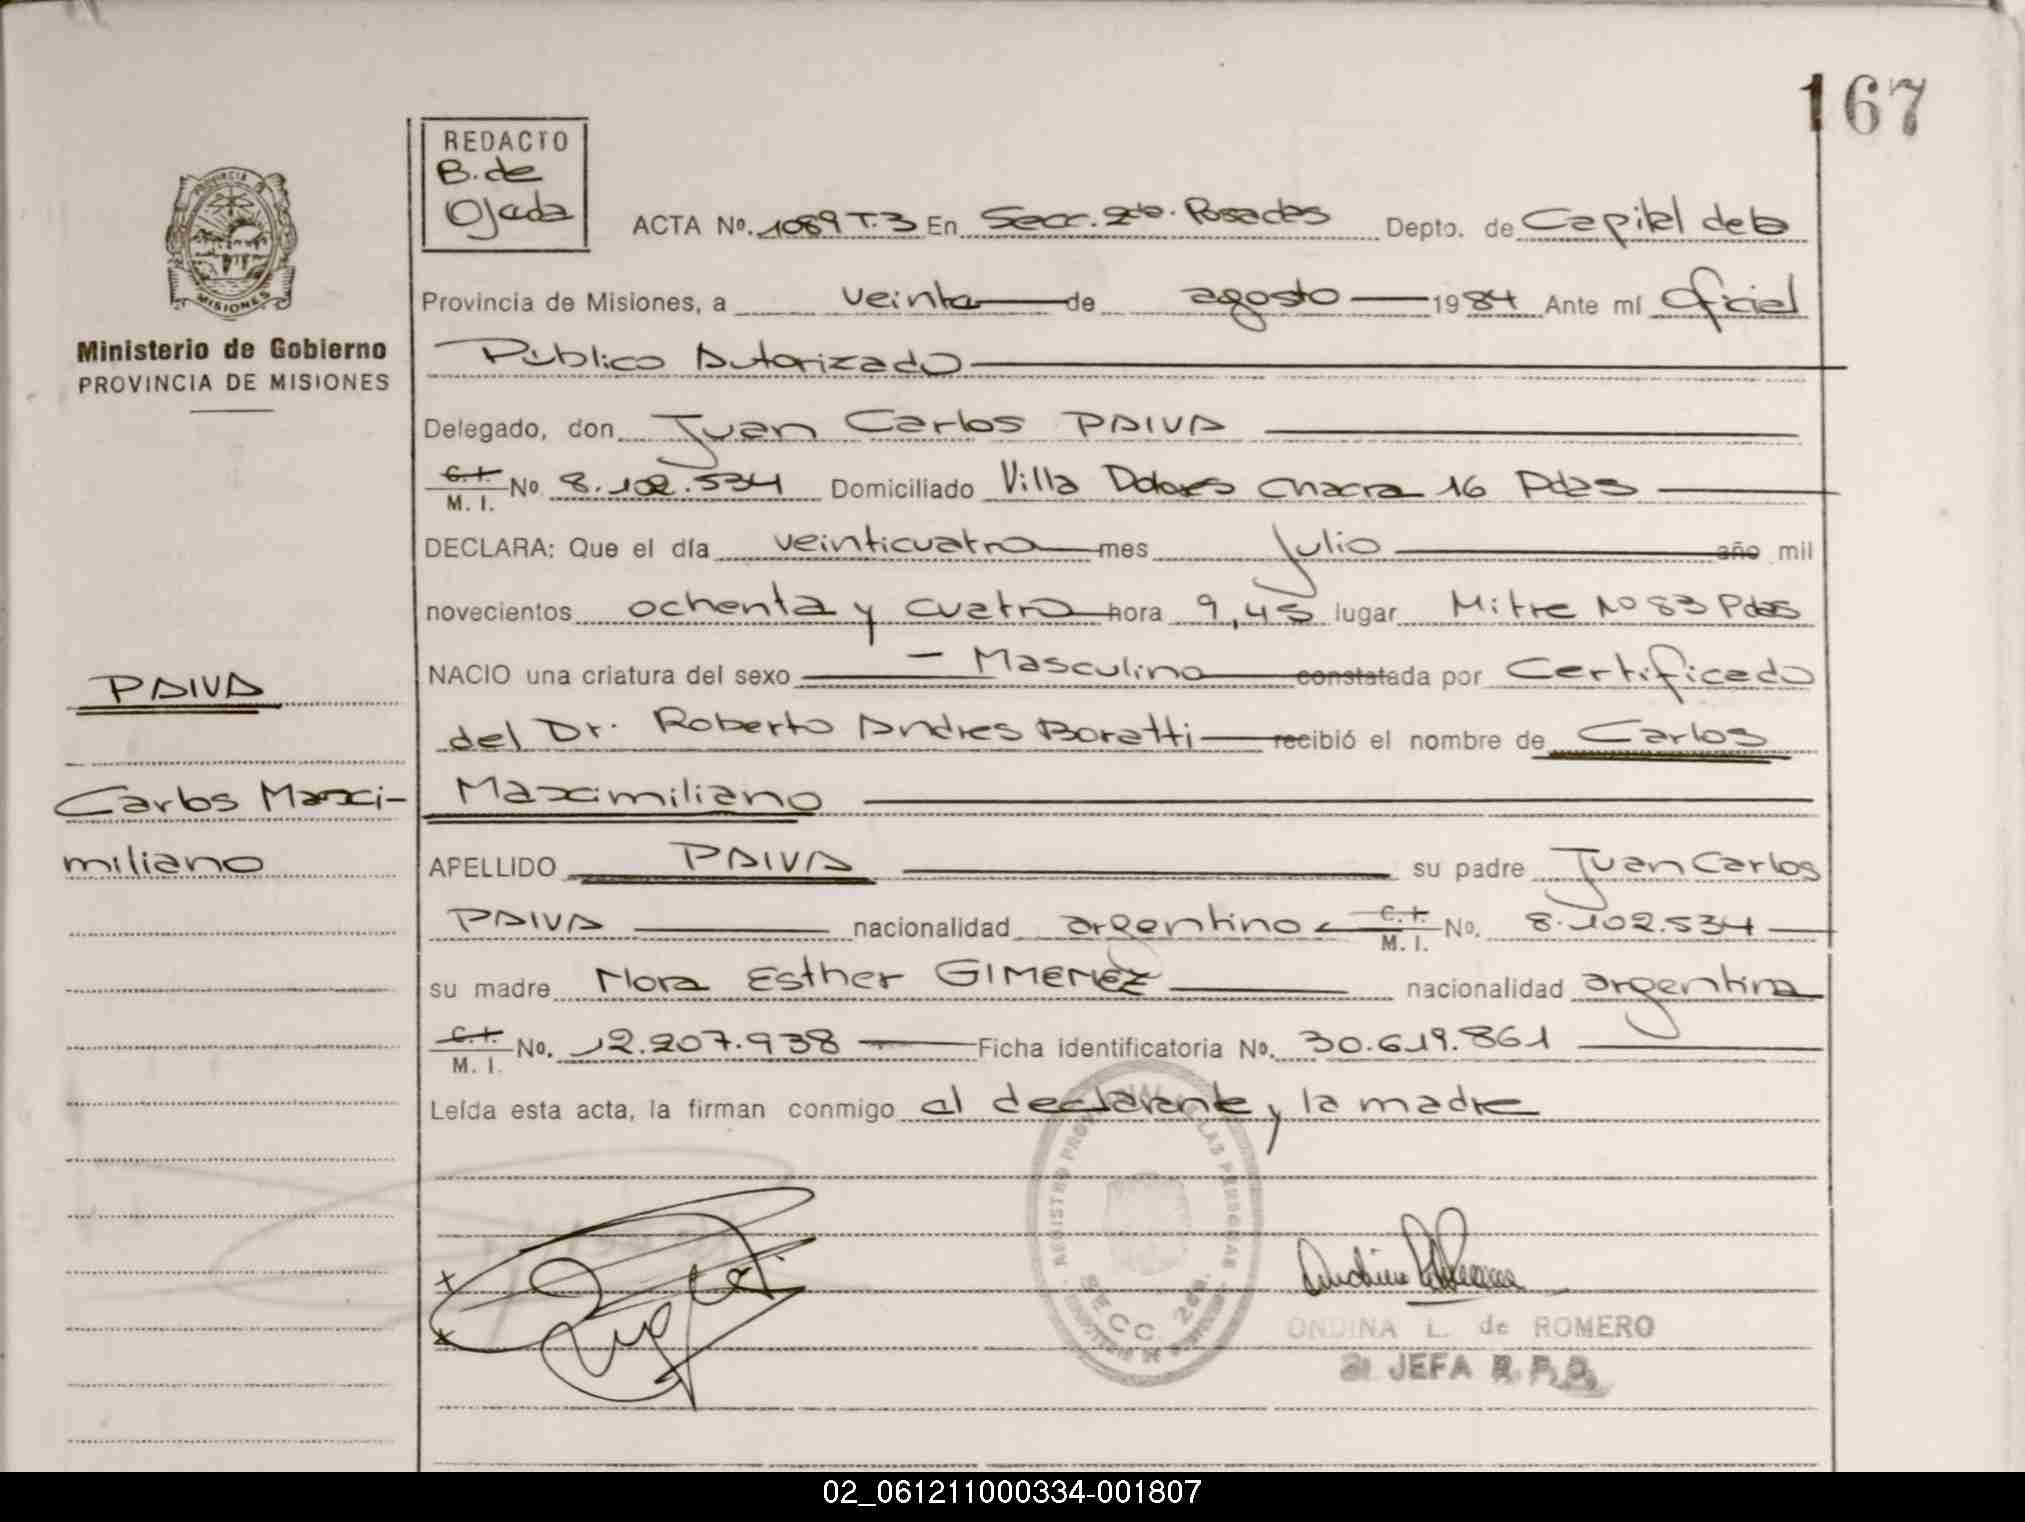 167
REDACTO
B. de
Ojeda
ACTA No. 1089 T.3 En Secc. 2da. Posadas Depto. de Capital de la
PROVINCIA DE
MISIONES
Provincia de Misiones, a veinte de agosto 1984 Ante mí Oficial
Ministerio de Gobierno
PROVINCIA DE MISIONES
Público Autorizado
Delegado, don Juan Carlos PAIVA
C.I. M. I. No 8.102.534 Domiciliado Villa Dolores Chacra 16 Pdas
DECLARA: Que el día veinticuatro mes Julio año mil
novecientos ochenta y cuatro hora 9,45 lugar Mitre No 83 Pdas
NACIO una criatura del sexo - Masculino constatada por Certificado
PAIVA
del Dr. Roberto Andres Boratti recibió el nombre de Carlos
Carlos Maxi-
Maximiliano
miliano
APELLIDO PAIVA su padre Juan Carlos
PAIVA nacionalidad argentino C.I. M. I. No. 8.102.534
su madre Nora Esther GIMENEZ nacionalidad argentina
C.I. M. I. No. 12.207.938 Ficha identificatoria No. 30.619.861
Leída esta acta, la firman conmigo el declarante y la madre
REGISTRO LAS PERSONAS
SECC. 2da.
ONDINA L. de ROMERO
JEFA R. P.
02_061211000334-001807